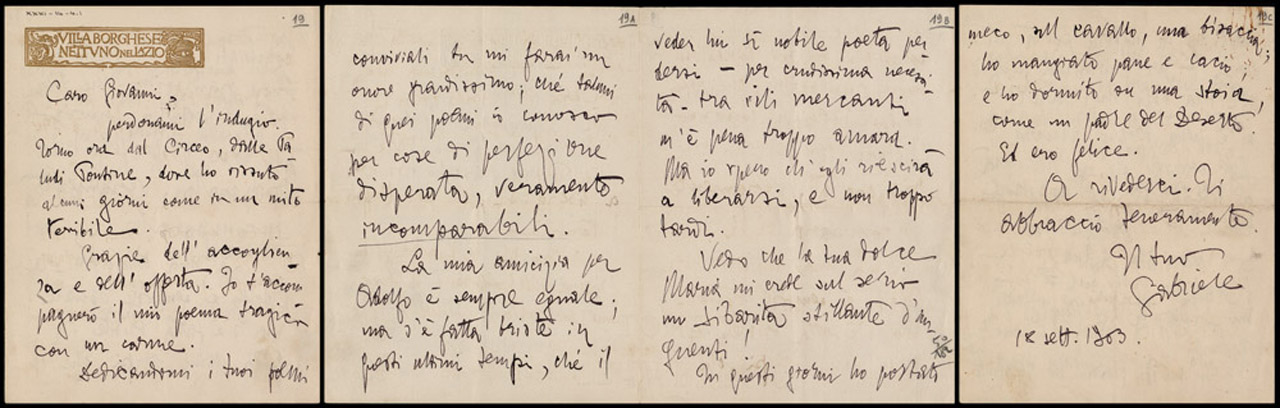 XXXI-16-4,1
19
VILLA BORGHESE
NETTUNO NEL LAZIO
Caro Giovanni,
perdonami l'indugio.
Torno ora dal Circeo, dalle Pa
ludi Pontine, dove ho vissuto
alcuni giorni come in un mito
terribile.
Grazie dell'accoglien
za e dell'offerta. Io t'accom
pagnerò il mio poema tragico
con un carme.
Dedicandomi i tuoi poemi
19A
conviviali tu mi farai un
onore grandissimo; ché taluni
di quei poemi io conosco
per cose di perfezione
disperata, veramente
incomparabili.
La mia amicizia per
Adolfo è sempre eguale;
ma s'è fatta triste in
questi ultimi tempi, ché il
19B
veder lui sì nobile poeta per
dersi – per crudissima necessi
tà – tra vili mercanti
m'è pena troppo amara.
Ma io spero ch'egli riescirà
a liberarsi, e non troppo
tardi.
Vedo che la tua dolce
Maria mi crede sul serio
un Sibarita stillante d'un
guenti!
In questi giorni ho portato
19C
meco, sul cavallo, una bisaccia;
ho mangiato pane e cacio;
e ho dormito su una stoia,
come un padre del Deserto.
Ed ero felice.
A rivederci. Ti
abbraccio teneramente.
Il tuo
Gabriele
18 sett. 1903.